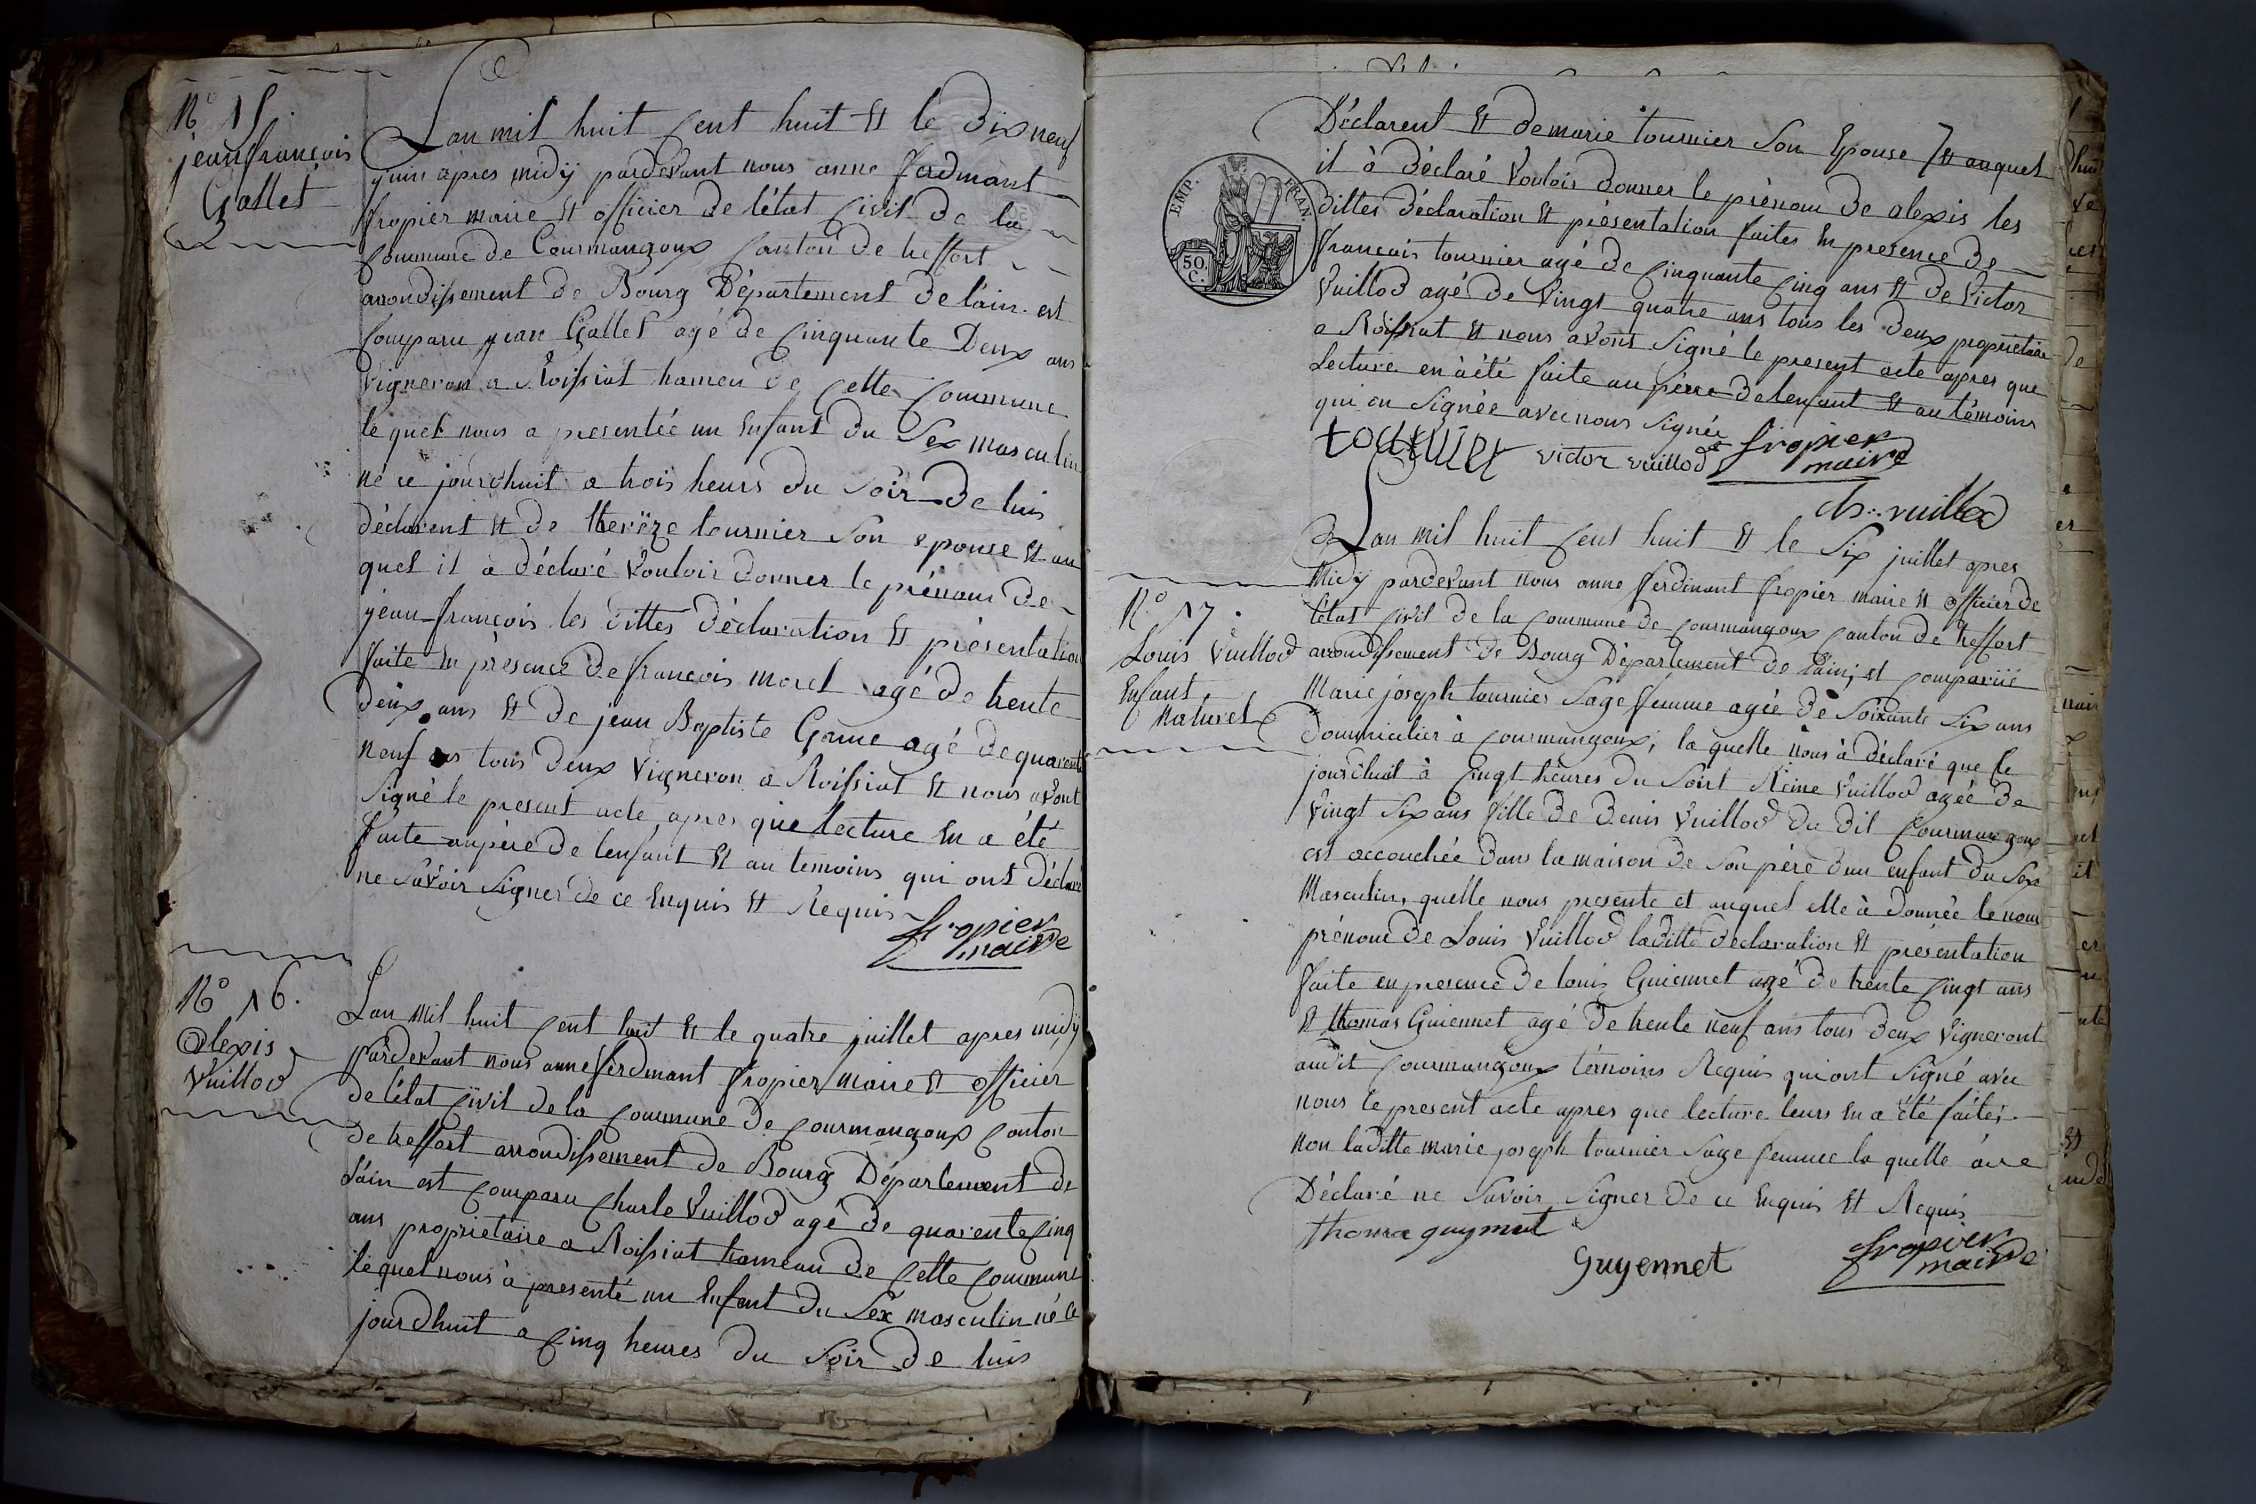 N° 15.
jean françois
Gallet
Lan mil huit Cent huit Et le Dix neuf
juin apres midÿ pardevant nous anne ferdinant
fropier maire Et officier de létat Civil de la
Commune de Courmangoux Canton de treffort
arrondissement de Bourg Département de l'ain est
Comparu jean Gallet agé de Cinquante Deux ans
vigneron a Roissiat hameu de Cette Commune
le quel nous a presentée un Enfant du Sex masculin
né ce jourdhuit a trois heurs du Soir de luis
déclarent Et de therëze tournier Son epouse Et au
quel il à déclaré Vouloir donner le prénom de
jean-françois les dittes déclaration Et présentation
faite En présence de françois morel agé de trente
deux ans Et de jean Baptiste Game agé de quarente
neuf ans tous deux Vigneron a Roissiat Et nous avont
Signé le present acte apres que lecture En a été
faite aupère de lenfant Et au temoins qui ont déclaré
ne Savoir Signer de ce Enquis Et Requis
fropier
maire
N° 16.
Alexis
Vuillod
Lan mil huit Cent huit Et le quatre juillet apres midÿ
pardevant nous anne ferdinant fropier maire Et officier
de létat Civil de la Commune de Courmangoux Canton
de treffort arrondissement de Bourg Département de
l'ain est Comparu Charle Vuillod agé de quarente Cinq
ans proprietaire a Roissiat hameau de Cette Commune
lequel nous à presenté un Enfant du Sex masculin né ce
jourdhuit a Cinq heures du Soir de luis
EMP. FRAN.
50
C.
Déclarent Et de marie tournier Son Epouse Et auquel
il à déclaré Vouloir donner le prénom de alexis les
dittes déclaration Et présentation faites En presence de
françois tournier agé de Cinquante Cinq ans Et de Victor
Vuillod agé de Vingt quatre ans tous les deux proprietaire
a Roissiat Et nous avons Signé le present acte apres que
Lecture en à été faite au pérre de lenfant Et au témoins
qui on Signée avec nous Signée
tournier victor vuillod fropier
maire
ch. vuillod
N° 17.
Louis Vuillod
Enfant
Naturel
Lan mil huit Cent huit Et le Six juillet apres
Midÿ pardevant nous anne ferdinant fropier maire Et officier de
létat Civil de la Commune de Courmangoux Canton de treffort
arrondissement de Bourg Département de l'ain, est Comparüe
Marie joseph tournier Sage femme agée de Soixante Six ans
Domicilier à Courmangoux, la quelle nous à déclaré que ce
jourdhuit à Cingt heures du Soirt Reine Vuillod agée de
Vingt Six ans fille de Denis Vuillod du dit Courmangoux
est accouchée dans la maison de Son pére dun enfant du Sex
Masculin, quelle nous presente et auquel elle à donnée le nom
prénom de Louis Vuillod laditte déclaration Et présentation
faite en presence de louis Guiennet agé de trente Cingt ans
Et thomas Guiennet agé de trente neuf ans tous deux Vigneront
audit Courmangoux témoins Requis qui ont Signé avec
nous le present acte apres que lecture leurs En a été faites
non laditte marie joseph tournier Sage femme la quelle
Déclaré ne Savoir Signer de ce Enquis Et Requis
Guyennet fropier
maire